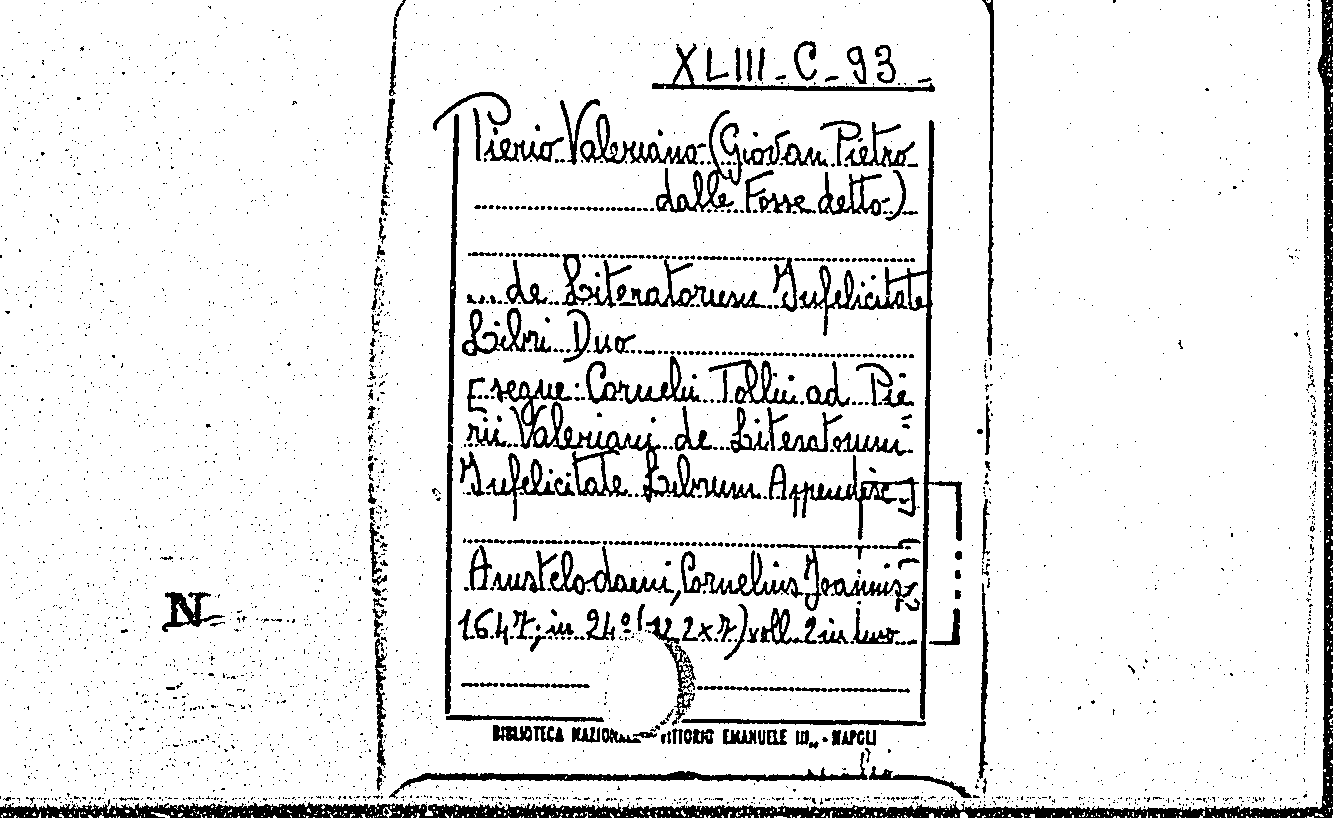 XLIII-C-93-
Pierio Valeriano (Giovan Pietro
dalle Fosse detto)
... de Literatorum Infelicitate
Libri Duo
[segue: Cornelii Tollii ad Pie
rii Valeriani de Literatorum
Infelicitate Librum Appendix]
Amstelodami, Cornelius Joannis
1647; in 24º (12,2x7) voll. 2 in uno
BIBLIOTECA NAZIONALE VITTORIO EMANUELE III„ - NAPOLI
N